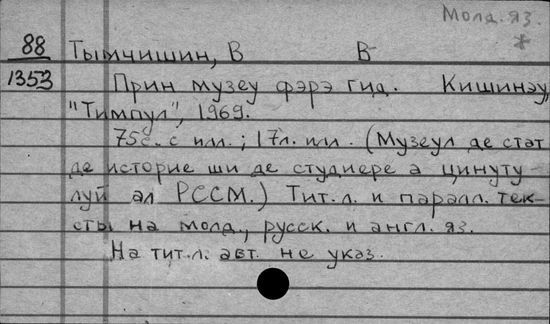 Молд. яз.
*
88 Тымчишин, В В
1353 Прин музеу фэрэ гид. Кишинэу,
"Тимпул", 1969.
75с. с илл.; 17л. илл. (Музеул де стат
де историе ши де студиере а цинуту
луй ал РССМ.) Тит. л. и паралл. тек-
сты на молд., русск. и англ. яз.
На тит. л. авт. не указ.